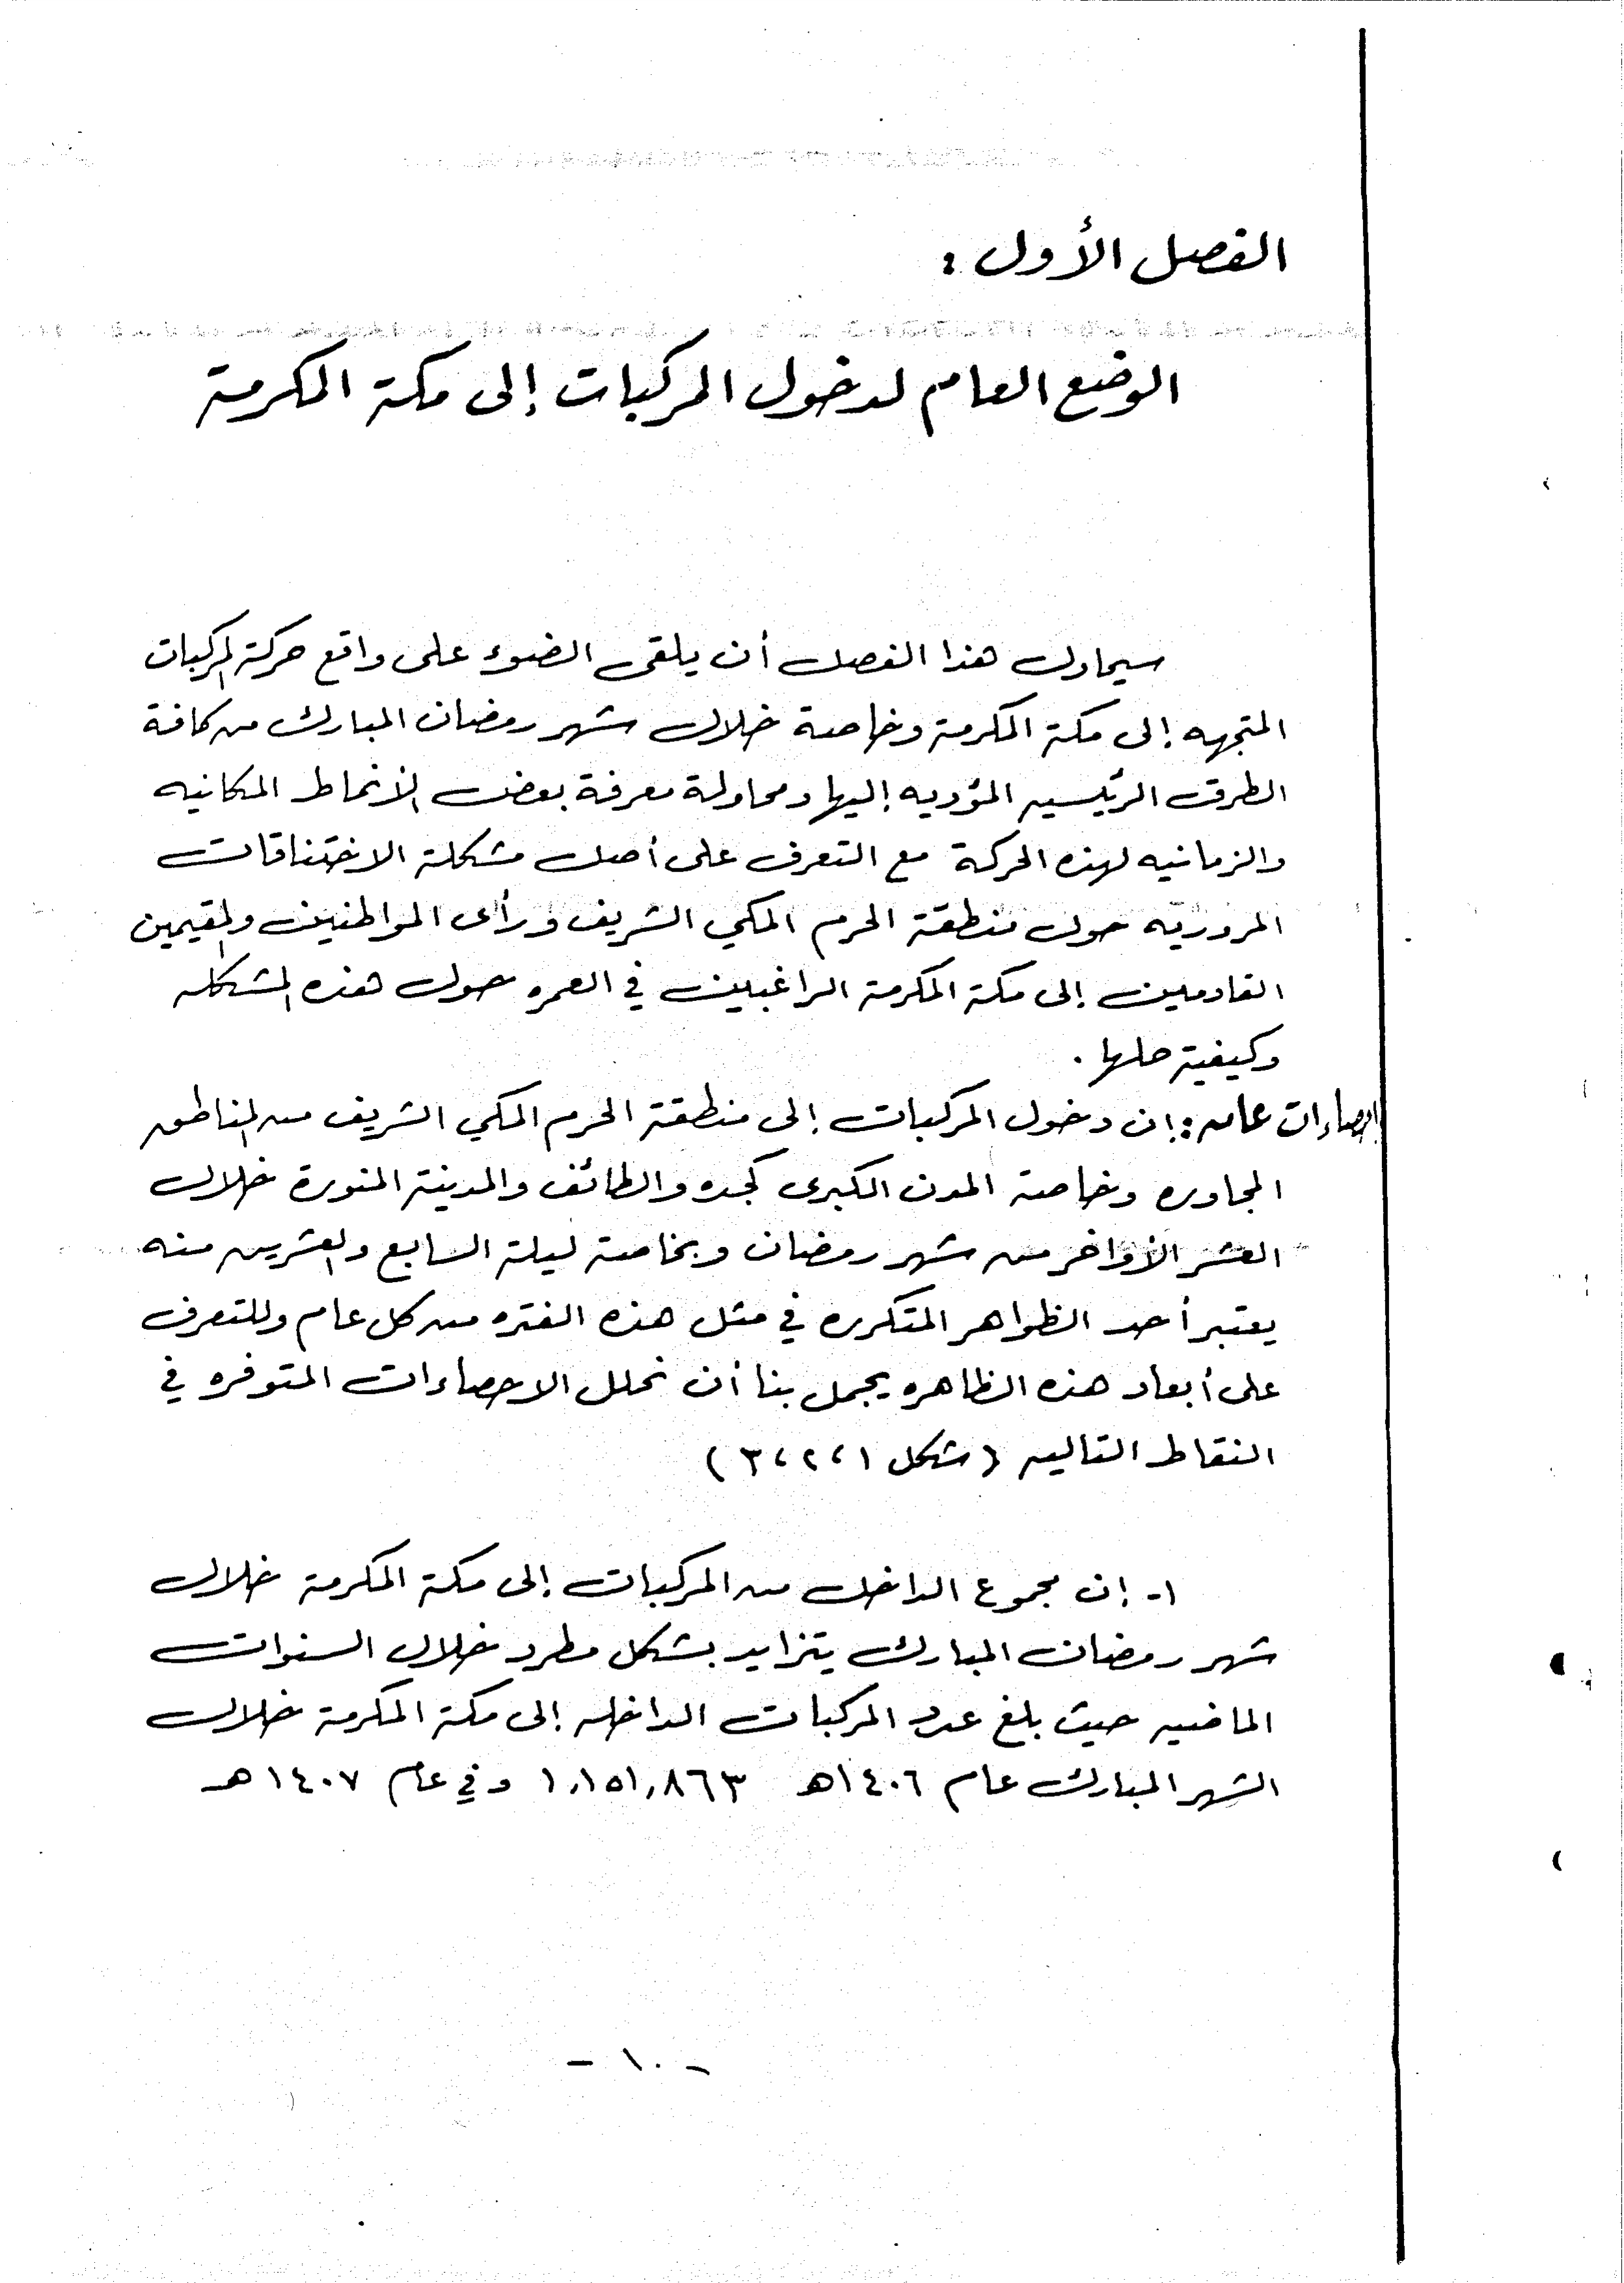 الفصل الأول :
الوضع العام لدخول المركبات إلى مكة المكرمة
سيحاول هذا الفصل أن يلقى الضوء على واقع حركة المركبات
المتجهه إلى مكة المكرمة وخاصة خلال شهر رمضان المبارك من كافة
الطرق الرئيسيه المؤديه إليها ومحاولة معرفة بعض الأنماط المكانيه
والزمانيه لهذه الحركة مع التعرف على أصل مشكلة الاختناقات
المروريه حول منطقة الحرم المكي الشريف ورأى المواطنين والمقيمين
القادمين إلى مكة المكرمة الراغبين في العمره حول هذه المشكله
وكيفية حلها .
إحصاءات عامه : إن دخول المركبات إلى منطقة الحرم المكي الشريف من المناطق
المجاوره وخاصة المدن الكبرى كجده والطائف والمدينة المنورة خلال
العشر الأواخر من شهر رمضان وبخاصة ليلة السابع والعشرين منه
يعتبر أحد الظواهر المتكرره في مثل هذه الفتره من كل عام وللتعرف
على أبعاد هذه الظاهره يجمل بنا أن نحلل الاحصاءات المتوفره في
النقاط التاليه ( شكل ١ ، ٢ ، ٣ )
١- إن مجموع الداخل من المركبات إلى مكة المكرمة خلال
شهر رمضان المبارك يتزايد بشكل مطرد خلال السنوات
الماضيه حيث بلغ عدد المركبات الداخله إلى مكة المكرمة خلال
الشهر المبارك عام ١٤٠٦هـ ١,١٥١,٨٦٣ وفي عام ١٤٠٧هـ
- ١٠ -